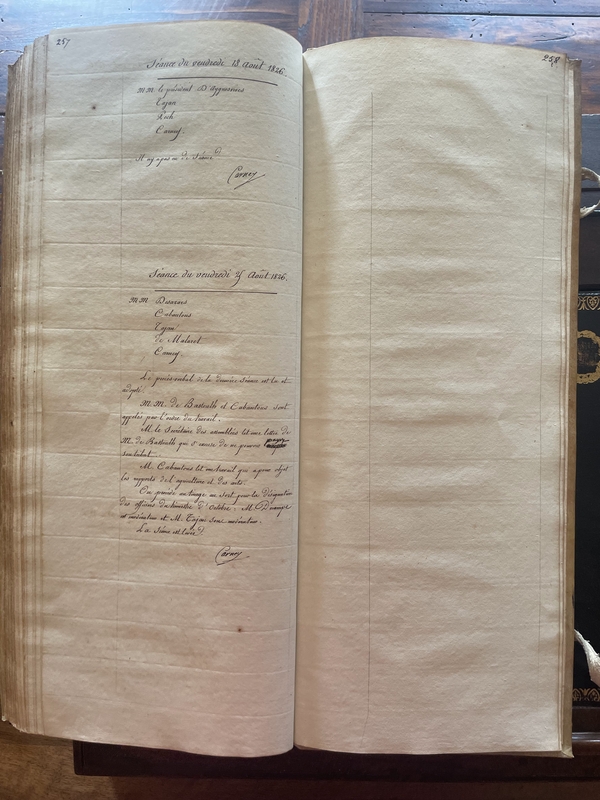 257
Séance du vendredi 18 Août 1826.
MM le président D'aguesseau
Tajan
Roch
Carney.
Il n'y a pas eu de Séance
Carney
Séance du vendredi 25 Août 1826.
MM
Cabantous
Tajan
de Malaret
Carney
Le procès verbal de la dernière séance est lu et
adopté.
M.M. de Bastoulh et Cabantous sont
appelés par l'ordre du travail.
M. le Secrétaire des assemblées lit une lettre de
M. de Bastoulh qui s'excuse de ne pouvoir payer
son tribut.
M. Cabantous lit un travail qui a pour objet
les rapports de l'agriculture et des arts.
On procède au tirage au sort pour la désignation
des officiers du trimestre d'Octobre. M.
est modérateur et M. Tajan sous-modérateur.
La Séance est levée
Carney
258